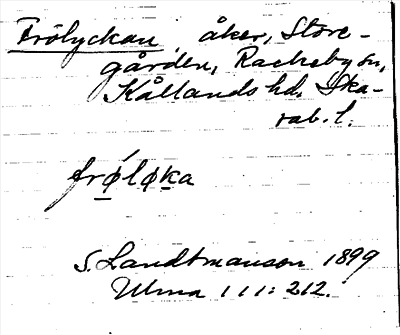 Frölyckan, åker, Store-
gården, Rackeby sn,
Kållands hd, Ska-
rab. l.
frǿløka
S. Landtmanson 1899
Ulma 111:212.